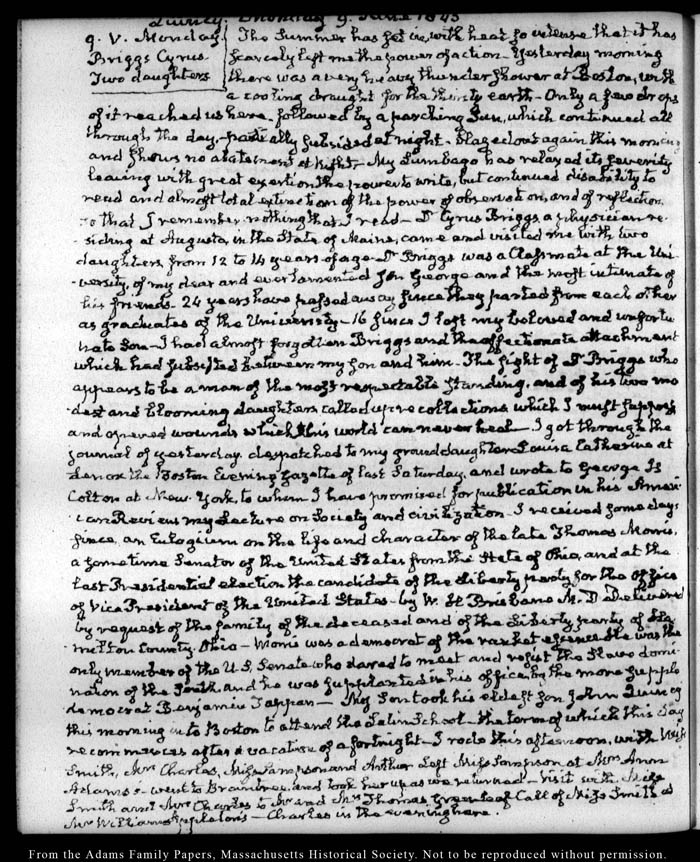 Quincy. Monday 9. June 1845
9. V. Monday
Briggs Cyrus
Two daughters
The Summer has set in, with heat so intense that it has
scarcely left me the power of action. Yesterday morning
there was a very heavy thunder shower at Boston, with
a cooling draught for the thirsty earth — Only a few drops
of it reached us here, followed by a parching Sun, which continued all
through the day, partially subsided at night — blazed out again this morning
and shows no abatement at Night — My Lumbago has relaxed its severity
leaving with great exertion the power to write, but continued disability to
read and almost total extinction of the power of observation, and of reflection
so that I remember nothing that I read — Dr Cyrus Briggs, a physician re-
siding at Augusta, in the State of Maine, came and visited me with two
daughters, from 12 to 14 years of age — Dr Briggs was a Classmate at the Uni-
versity, of my dear and ever lamented Son George and the most intimate of
his friends — 24 years have passed away since they parted from each other
as graduates of the University — 16 since I lost my beloved and unfortu
nate Son — I had almost forgotten Briggs and the affectionate attachment
which had subsisted between my son and him — The sight of Dr Briggs who
appears to be a man of the most respectable standing, and of his two mo
dest and blooming daughters called up recollections which I must suppress
and opened wounds which this world can never heal — I got through the
journal of yesterday. despatched to my granddaughter Louisa Catherine at
Lenox the Boston Evening Gazette of last Saturday, and wrote to George H
Colton at New-York, to whom I have promised for publication in his Ameri-
can Review my Lecture on Society and civilization — I received some days
since, an Eulogium on the life and character of the late Thomas Morris,
a sometime Senator of the United States from the State of Ohio, and at the
last Presidential election the candidate of the Liberty party for the Office
of Vice President of the United States — by W. H Brisbane M.D delivered
by request of the family of the deceased and of the Liberty party of Ha
milton County. Ohio — Morris was a democrat of the rankest essence. He was the
only member of the U.S. Senate who dared to meet and resist the Slave domi-
nation of the South, and he was supplanted in his office, by the more supple
democrat Benjamin Tappan — My Son took his eldest son John Quincy
this morning in to Boston to attend the Latin School — the term of which this day
recommences after a vacation of a fortnight — I rode this afternoon, with Miss
Smith, Mrs Charles, Miss Sampson and Arthur Left Miss Sampson at Mrs Ann
Adams's — went to Braintree, and took her up as we returned — Visit with Miss
Smith and Mrs Charles to Mr and Mrs Thomas Greenleaf Call of Miss Smith at
Mrs William Appleton's — Charles in the evening here.
From the Adams Family Papers, Massachusetts Historical Society. Not to be reproduced without permission.